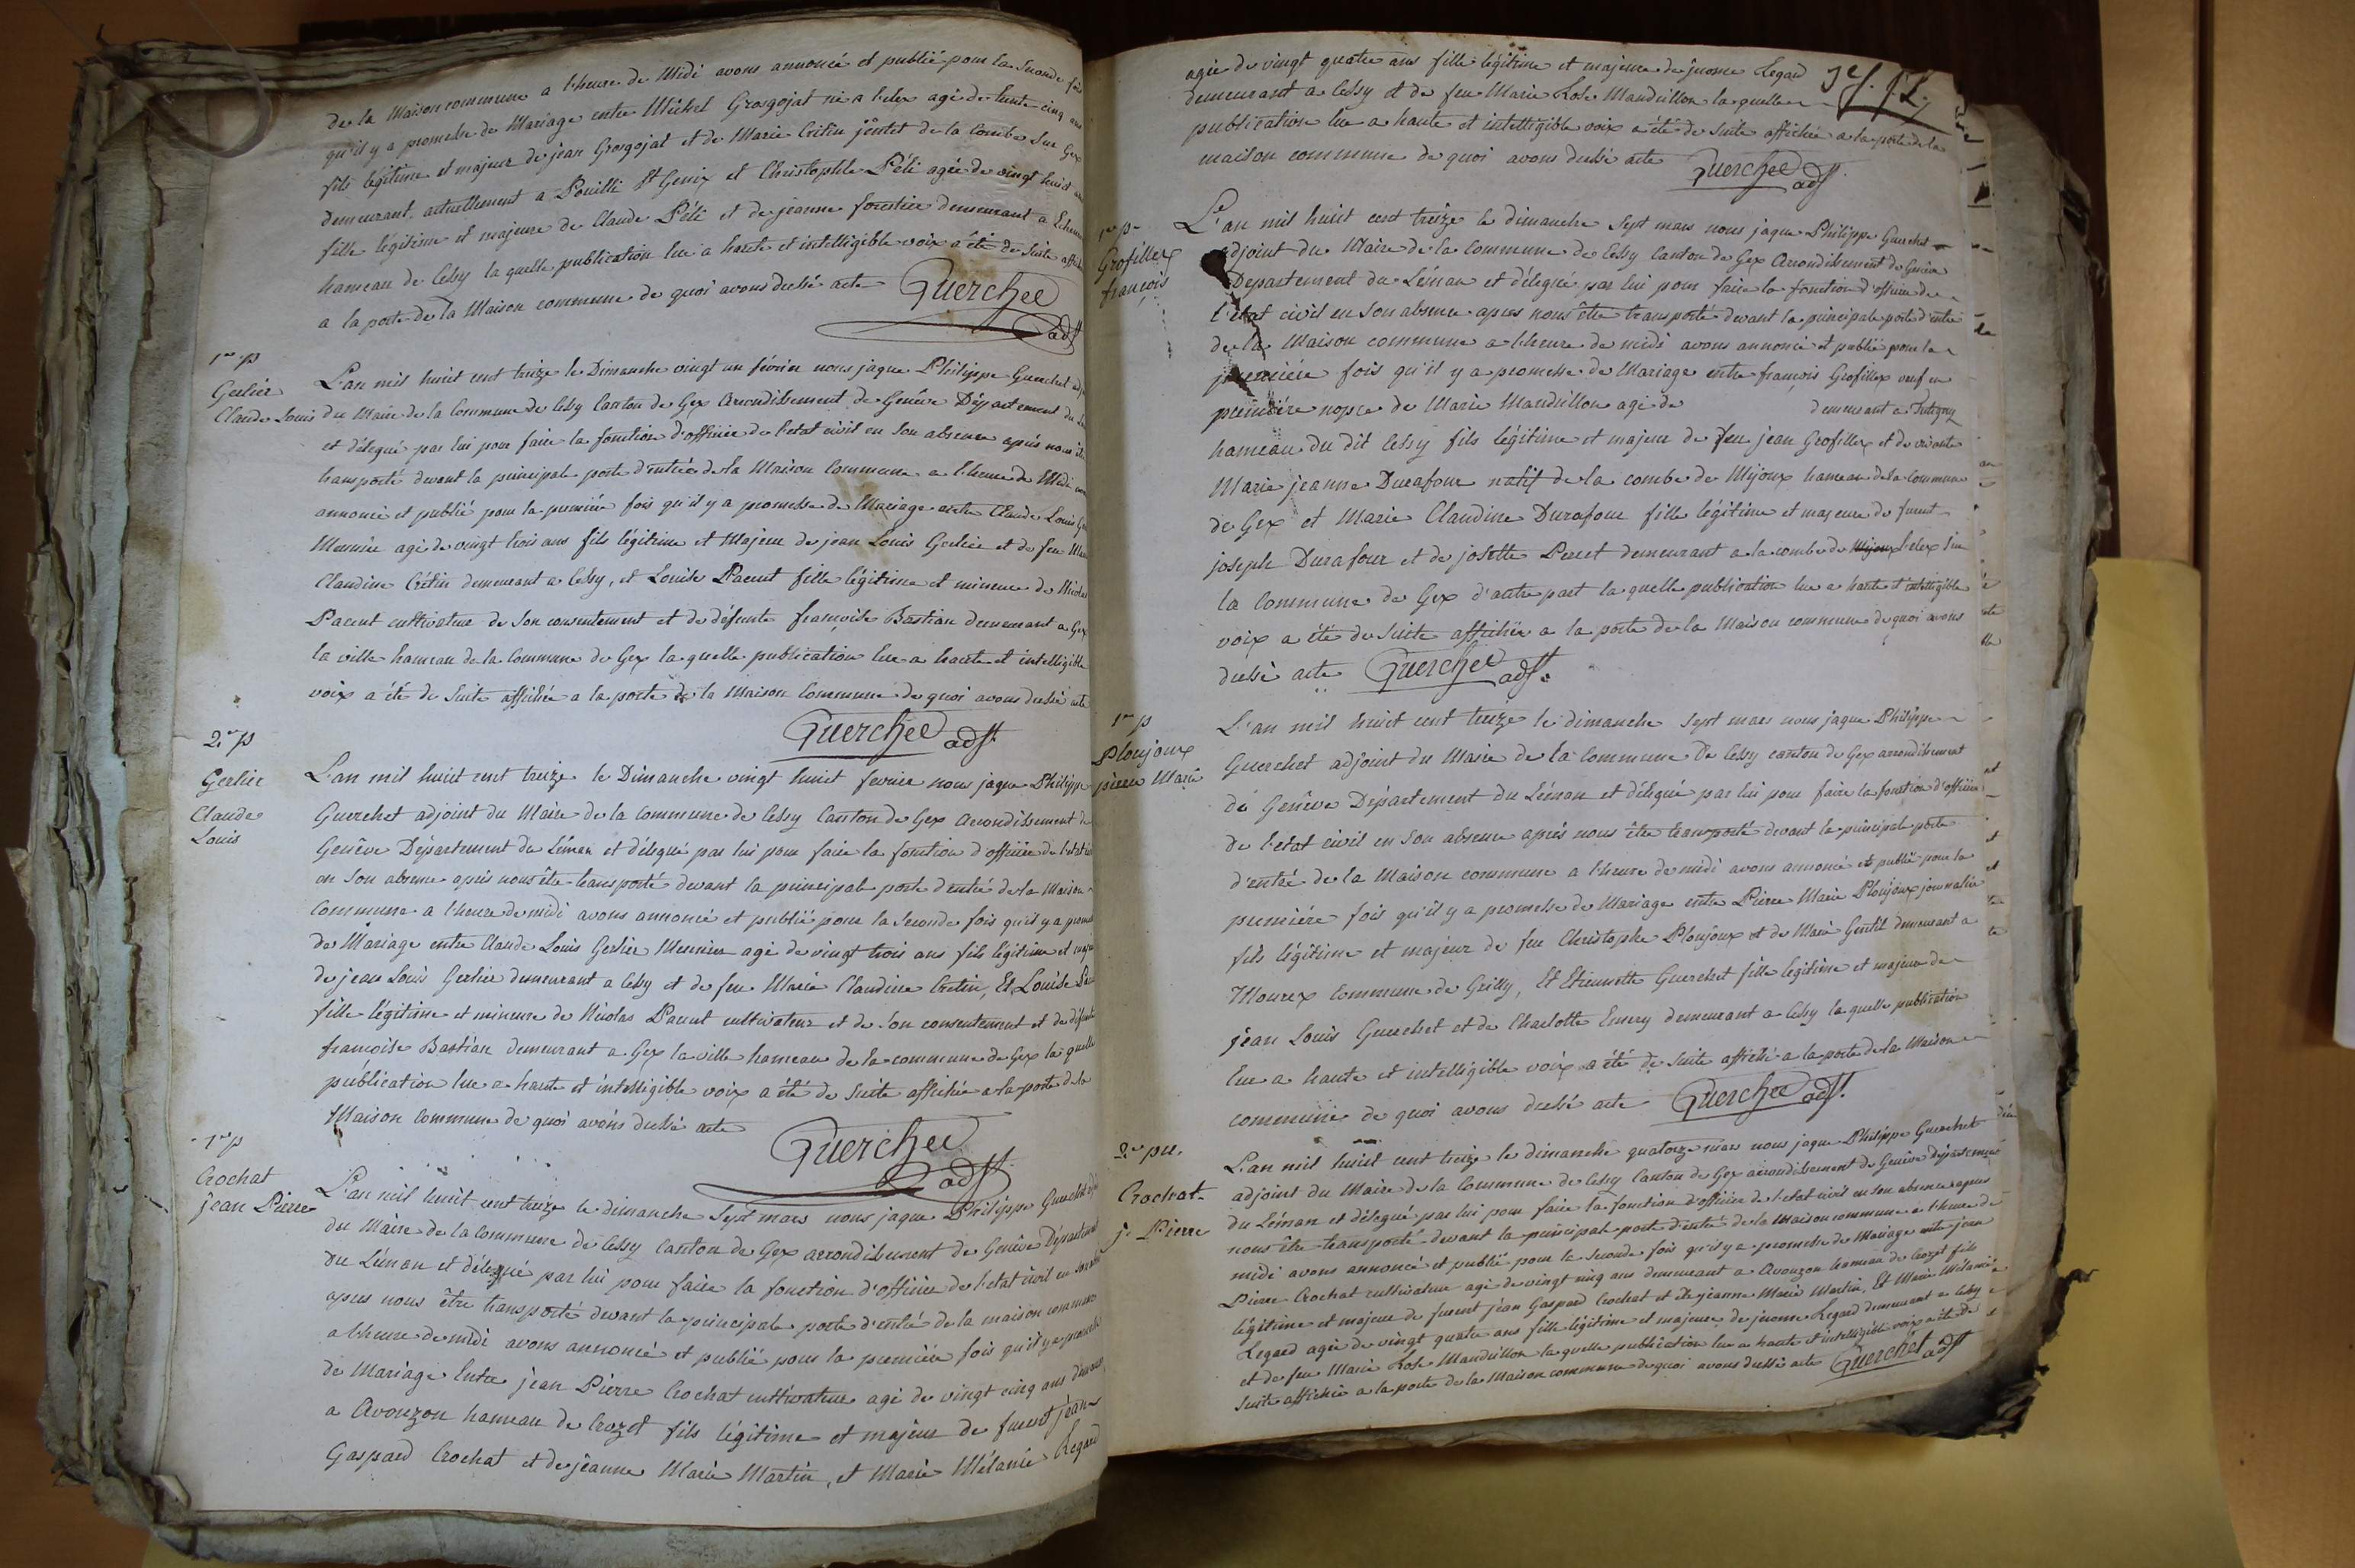 de la Maison commune a l'heure de Midi avons annoncé et publié pour la Seconde fois
qu'il y a promesse de Mariage entre Michel Grosgojat né a lelex agé de trente cinq ans
fils légitime et majeur de jean Grosgojat et de Marie Critin jentet de la Combe Sur Gex
demeurant actuellement a Pouilli St Genix et Christophle Péli agée de vingt huit
fille légitime et majeure de Claude Péli et de jeanne forestier demeurant a
hameau de Cessy la quelle publication lue a haute et intelligible voix a été de Suite
a la porte de la Maison commune de quoi avons dressé acte Guerchet
adjt
1re p
Gerlier
Claude Louis
L'an mil huit cent treize le Dimanche vingt un février nous jaque Philippe Guerchet
du Maire de la Commune de Cessy Canton de Gex Arrondissement de Genêve Département du
et délégué par lui pour faire la fonction d'officier de l'etat civil en Son absence après nous
transporté devant la principale porte d'entrée de la Maison Commune a l'heure de Midi
annoncé et publié pour la première fois qu'il y a promesse de Mariage entre Claude Louis
Meunier agé de vingt trois ans fils légitime et Majeur de jean Louis Gerlier et de feu
Claudine Crétin demeurant a Cessy, et Louise Pacent fille légitime et mineure de
Pacent cultivateur de Son consentement et de défunte françoise Bastian demeurant a Gex
la ville hameau de la Commune de Gex la quelle publication lue a haute et intelligible
voix a été de Suite affichée a la porte de la Maison Commune de quoi avons dressé acte
Guerchet adjt
2e p
Gerlier
Claude
Louis
L'an mil huit cent treize le Dimanche vingt huit fevrier nous jaque Philippe
Guerchet adjoint du Maire de la Commune de Cessy Canton de Gex Arrondissement de
Genêve Département du Léman et délégué par lui pour faire la fonction d'officier de l'etat
en Son absence après nous être transporté devant la principale porte d'entrée de la Maison
Commune a l'heure de midi avons annoncé et publié pour la Seconde fois qu'il y a
de Mariage entre Claude Louis Gerlier Meunier agé de vingt trois ans fils légitime et
de jean Louis Gerlier demeurant a Cessy et de feu Marie Claudine Cretin, Et Louise
fille légitime et mineure de Nicolas Pacent cultivateur et de Son consentement et de
françoise Bastian demeurant a Gex la ville hameau de la commune de Gex la quelle
publication lue a haute et intelligible voix a été de Suite affichée a la porte de la
Maison Commune de quoi avons dressé acte
Guerchet
adjt
1re p
Crochat
jean Pierre
L'an mil huit cent treize le dimanche Sept mars nous jaque Philippe Guerchet
du Maire de la Commune de Cessy Canton de Gex arrondissement de Genêve Département
du Léman et délegué par lui pour faire la fonction d'officier de l'etat civil en Son
apres nous être transporté devant la principale porte d'entrée de la maison commune
a l'heure de midi avons annoncé et publié pour la première fois qu'il y a promesse
de Mariage Entre jean Pierre Crochat cultivateur agé de vingt cinq ans
a Avouzon hameau de Crozet fils légitime et majeur de furent jean
Gaspard Crochat et de jeanne Marie Martin, et Marie Mélanie Regard
agée de vingt quatre ans fille légitime et majeure de jerome Regard
demeurant a Cessy et de feu Marie Rose Mandrillon la quelle
publication lue a haute et intelligible voix a été de Suite affichée a la porte de la
maison commune de quoi avons dressé acte Guerchet adjt.
1re p
Grosfillex
françois
L'an mil huit cent treize le dimanche Sept mars nous jaque Philippe Guerchet
adjoint du Maire de la Commune de Cessy Canton de Gex Arrondissement de Genêve
Departement du Léman et délegué par lui pour faire la fonction d'officier de
l'état civil en Son absence apres nous être transporté devant la principale porte d'entrée
de la Maison commune a l'heure de midi avons annoncé et publié pour la
première fois qu'il y a promesse de Mariage entre françois Grofillex veuf en
première nopce de Marie Mandrillon agé de demeurant a Tutegny
hameau du dit Cessy fils légitime et majeur de feu jean Grofillex et de vivante
Marie jeanne Durafour natif de la combe de Mijoux hameau de la Commune
de Gex et Marie Claudine Durafour fille légitime et majeure de furent
joseph Durafour et de josette Perret demeurant a la combe de Mijoux lelex Sur
la Commune de Gex d'autre part la quelle publication lue a haute et intelligible
voix a été de Suite affichée a la porte de la Maison commune de quoi avons
dressé acte Guerchet adjt.
1re p
Ploujoux
pierre Marie
L'an mil huit cent treize le dimanche Sept mars nous jaque Philippe
Guerchet adjoint du Maire de la Commune de Cessy canton de Gex arrondissement
de Genêve Département du Léman et délegué par lui pour faire la fonction d'officier
de l'etat civil en Son absence après nous être transporté devant la principale porte
d'entrée de la Maison commune a l'heure de midi avons annoncé et publié pour la
première fois qu'il y a promesse de Mariage entre Pierre Marie Ploujoux journalier
fils légitime et majeur de feu Christophe Ploujoux et de Marie Gentil demeurant a
Mourex Commune de Grilly, Et Etiennette Guerchet fille légitime et majeure de
jean Louis Guerchet et de Charlotte Emery demeurant a Cessy la quelle publication
lue a haute et intelligible voix a été de Suite affiché a la porte de la Maison
commune de quoi avons dressé acte Guerchet adjt.
2e pu.
Crochat
j. Pierre
L'an mil huit cent treize le dimanche quatorze mars nous jaque Philippe Guerchet
adjoint du Maire de la Commune de Cessy Canton de Gex arrondissement de Genêve département
du Léman et délegué par lui pour faire la fonction d'officier de l'etat civil en son absence apres
nous être transporté devant la principale porte d'entrée de la Maison commune a l'heure de
midi avons annoncé et publié pour la Seconde fois qu'il y a promesse de Mariage entre jean
Pierre Crochat cultivateur agé de vingt cinq ans demeurant a Avouzon hameau de Crozet fils
légitime et majeur de furent jean Gaspard Crochat et de jeanne Marie Martin, Et Marie Mélanie
Regard agée de vingt quatre ans fille légitime et majeure de jerome Regard demeurant a Cessy
et de feu Marie Rose Mandrillon la quelle publication lue a haute et intelligible voix a été de
Suite affichée a la porte de la Maison commune de quoi avons dressé acte Guerchet adjt